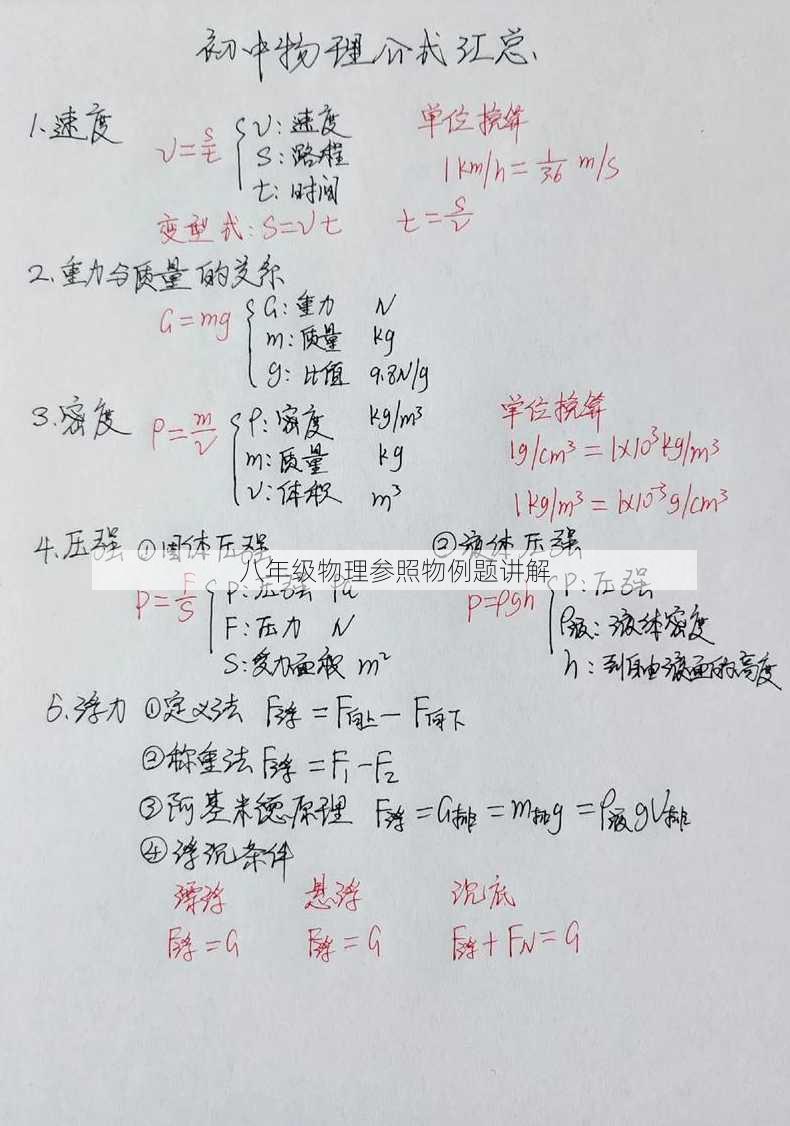 初中物理公式汇总
1.速度
v=s/t { v:速度 单位换算
s:路程 1km/h=1/3.6 m/s
t:时间
变型式:s=vt t=s/v
2.重力与质量的关系
G=mg { G:重力 N
m:质量 kg
g:比值 9.8N/g
3.密度 ρ=m/v { ρ:密度 kg/m³ 单位换算
m:质量 kg 1g/cm³=1×10³kg/m³
v:体积 m³ 1kg/m³=1×10⁻³g/cm³
4.压强 ①固体压强 ②液体压强
八年级物理参照物例题讲解
P=F/S { P:压强 Pa P=ρgh { P:压强
F:压力 N ρ液:液体密度
S:受力面积 m² h:到自由液面的高度
5.浮力 ①定义法 F浮=F向上-F向下
②称重法 F浮=F₁-F₂
③阿基米德原理 F浮=G排=m排g=ρ液gV排
④浮沉条件
漂浮 悬浮 沉底
F浮=G F浮=G F浮+FN=G